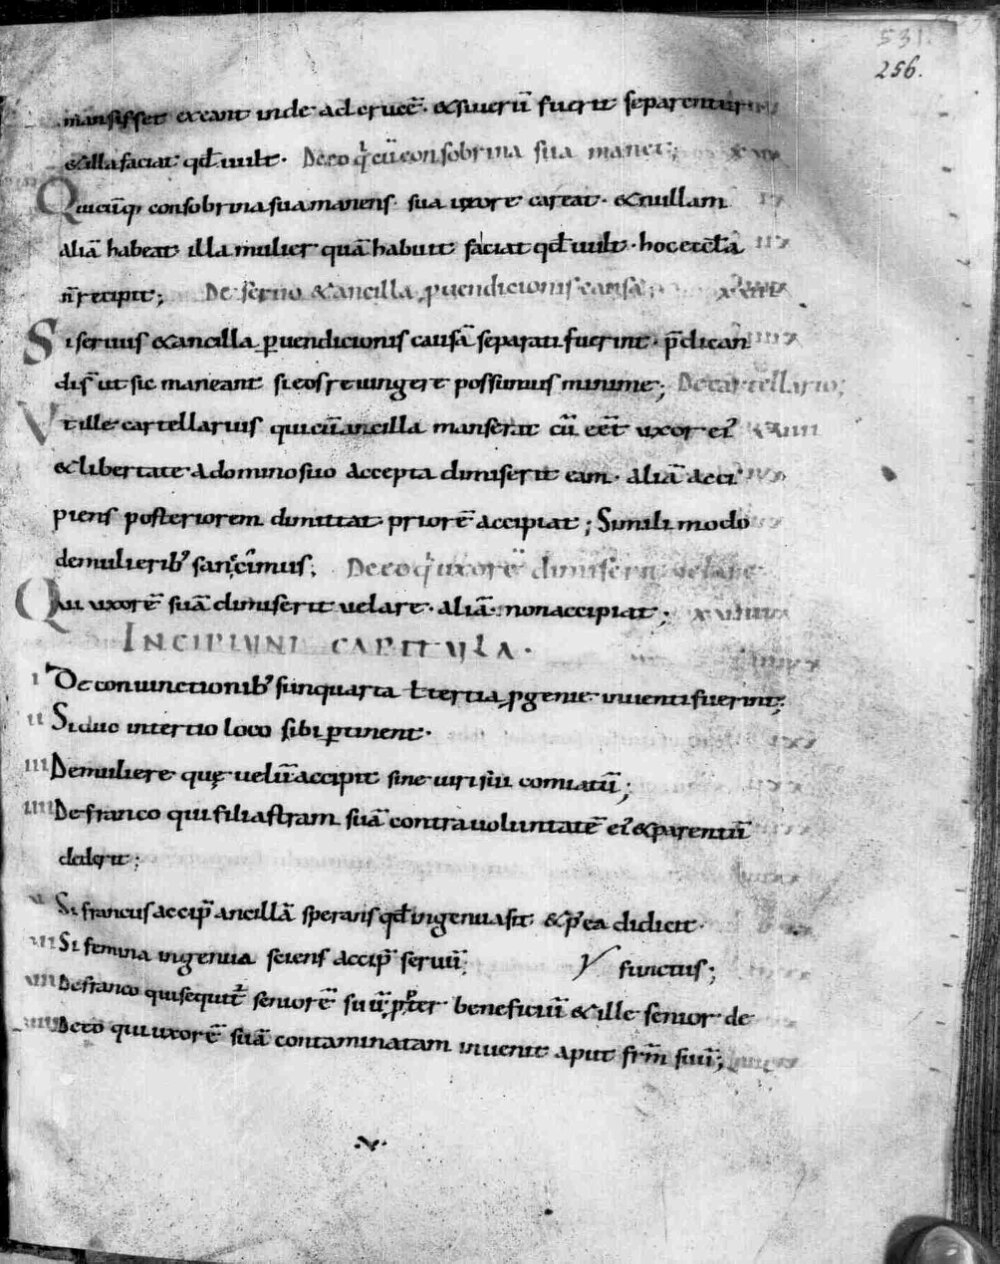 531.
256.
mansisset exeant inde ad crucē. & si uerū fuerit separentur
& illa faciat qđ uult. De eo q' cū consobrina sua manet;
Quicūq; consobrina sua manens. sua uxore careat. & nullam
aliā habeat illa mulier quā habuit faciat qđ uult. hoc eccła
n̄ recipit; De seruo & ancilla ꝓ uendicionis causa;
Si seruus & ancilla ꝑ uendicionis causā separati fuerint. p̄dican
di s̄ ut sic maneant si eos reiungere possumus minime; De cartellario;
Vt ille cartellarius qui cū ancilla manserat cū eēt uxor ei'
& libertate a domino suo accepta dimiserit eam. aliā acci
piens posteriorem dimittat priorē accipiat; Simili modo
de mulierib; sanccimus; De eo q' uxorē dimiserit uelare
Qui uxorē suā dimiserit uelare. aliā non accipiat;
INCIPIUNT CAPITULA.
I De coniunctionib; si in quarta ł tertia ꝓgenie inuenti fuerint;
II Si duo in tertio loco sibi ꝑtinent.
III De muliere quę uelū accipit sine uiri sui comiatū;
IIII De franco qui filiastram suā contra uoluntatē ei' & parentū
dederit;
V Si francus accip̄ ancillā sperans qđ ingenua sit & p' ea didicit.
VI Si femina ingenua sciens accip̄ seruū;
functus;
VII De franco qui sequit' seniorē suū ꝓpter beneficiū & ille senior de
VIII De eo qui uxorē suā contaminatam inuenit aput frm̄ suū;